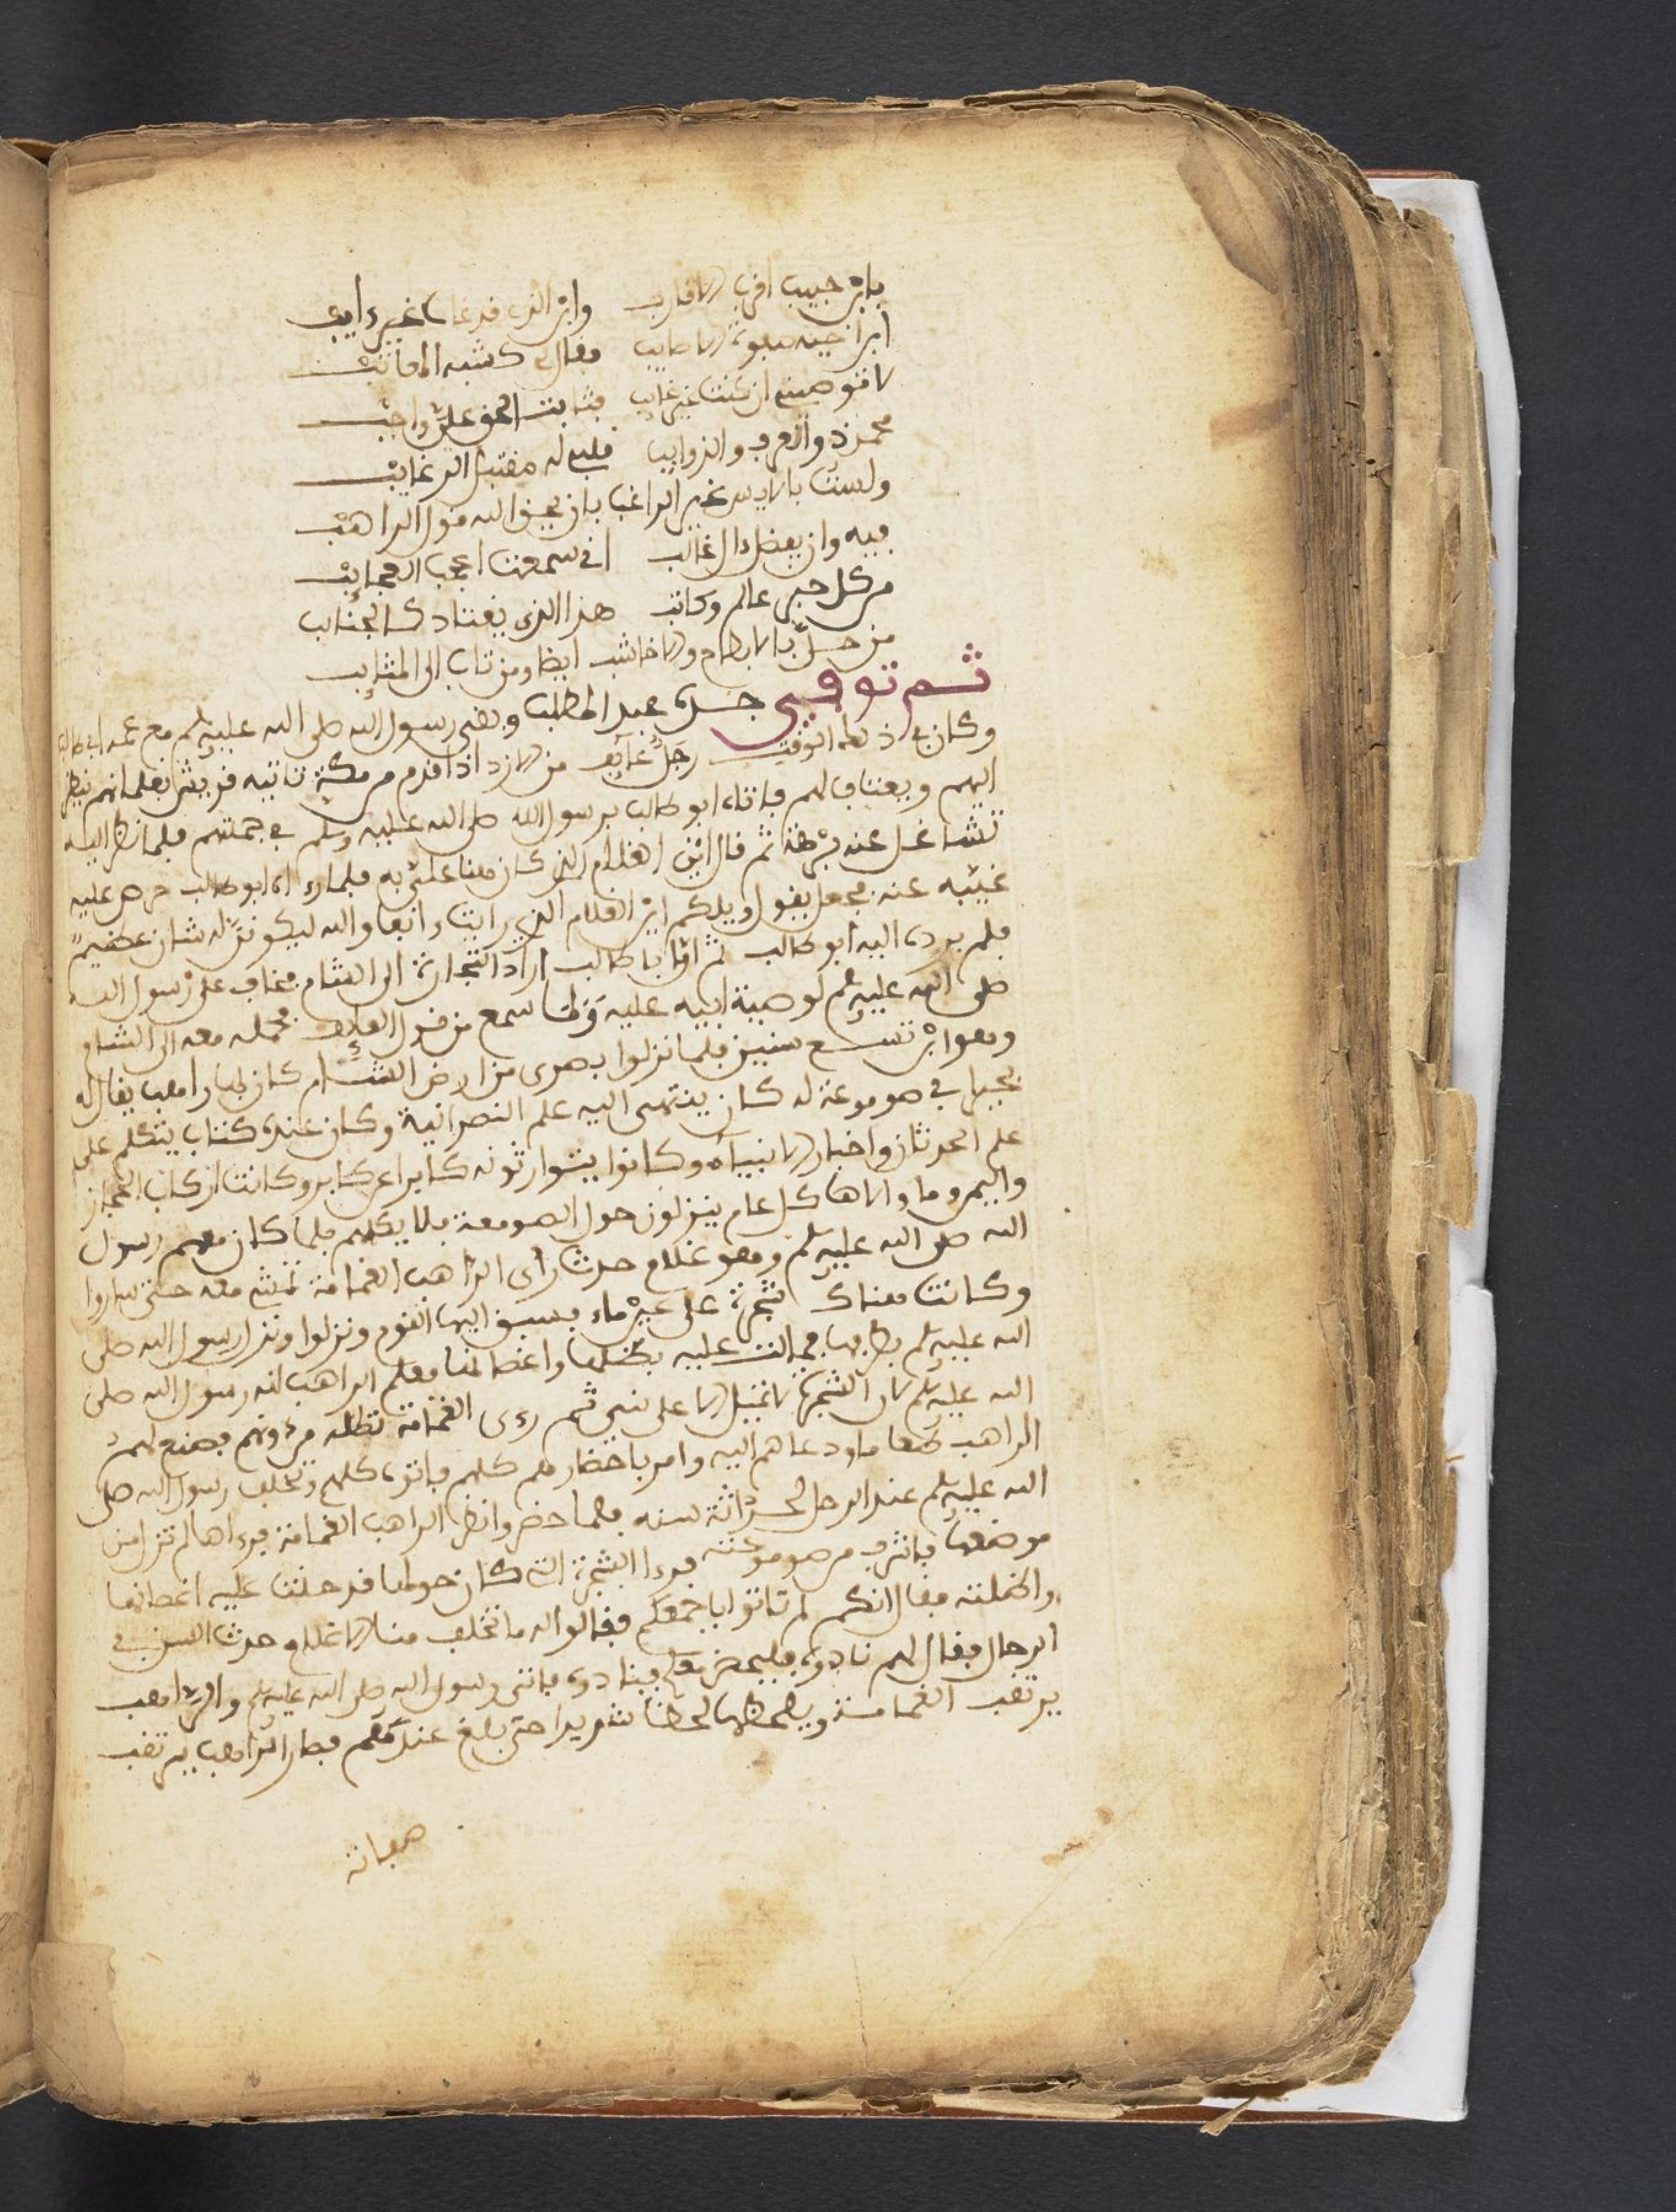 بابن حبيب اقرب الاقارب وابن الذي قد غاب غير ءايب
ابن اخيه فقال كشبه المعاتب
لا توصني ان كنت غير عايب بثابت الحق علي واجب
محمد ذو العرف والذوايب قلبي له مقتبل الرغايب
ولست بالايس غير الراغب بان يحق الله قول الراهب
فيه وان يفضل ءال غالب اني سمعت اعجب العجايب
من كل حبر عالم وكاتب هذا الذي يقتاد كالجنايب
من حل بالابطاح والاخاشب ايضا ومن ثاب الى المثايب
ثم توفي جده عبد المطلب وبقى رسول الله صلى الله عليه وسلم مع عمه ابي طالب
وكان في ذلك الوقت رجل عايف من الازد اذا قدم من مكة تاتيه قريش بغلمانهم ينظر
اليهم ويعتاف لهم فاتاه ابو طالب برسول الله صلى الله عليه وسلم في جملتهم فلما نظر اليه
تشاغل عنه برهة ثم قال اين الغلام الذي كان هنا علي به فلما رءا ابو طالب حرصه عليه
غيبه عنه فجعل يقول ويلكم اين الغلام الذي رايت ءانفا والله ليكونن له شان عظيم
فلم يرده اليه ابو طالب ثم ان ابا طالب اراد التجارة الى الشام فخاف على رسول الله
صلى الله عليه وسلم لوصية ابيه عليه ولما سمع من قول العايف فحمله معه الى الشام
وهو ابن تسع سنين فلما نزلوا بصرى من ارض الشام كان لها راهب يقال له
بحيرا في صومعة له كان ينتهى اليه علم النصرانية وكان عنده كتاب يتكلم على
علم الحدثان واخبار الانبياء وكانوا يتوارثونه كابرا عن كابر وكانت اركاب الحجاز
واليمن وما والاها كل عام ينزلون حول الصومعة فلا يكلمهم فلما كان معهم رسول
الله صلى الله عليه وسلم وهو غلام حدث رأى الراهب الغمامة تمشي معه حتى ساروا
وكانت هناك شجرة على عين ماء فسبق اليها القوم ونزلوا ونزل رسول الله صلى
الله عليه وسلم فمالت عليه بظلها واغصانها فعلم الراهب انه رسول الله صلى
الله عليه وسلم لان الشجرة لا تميل الا على نبي ثم رءى الغمامة تظله من دونهم فصنع لهم
الراهب طعاما ودعاهم اليه وامر باحضارهم كلهم فاتوه كلهم وتخلف رسول الله صلى
الله عليه وسلم عند الرحل لحداثة سنه فلما حضروا نظر الراهب الغمامة فرءاها لم تزل من
موضعها فاشرف من صومعته فرءا الشجرة التي كان حولها قد حنت عليه اغصانها
واظلته فقال انكم لم تاتوا باجمعكم فقالوا له ما تخلف منا الا غلام حدث السن في
الرحال فقال لهم نادوه فليحضر معكم فنادوه فاتى رسول الله صلى الله عليه وسلم والراهب
يرتقب الغمامة ويلحظها لحظا شديدا حتى بلغ عندهم فصار الراهب يرتقب
صفاته